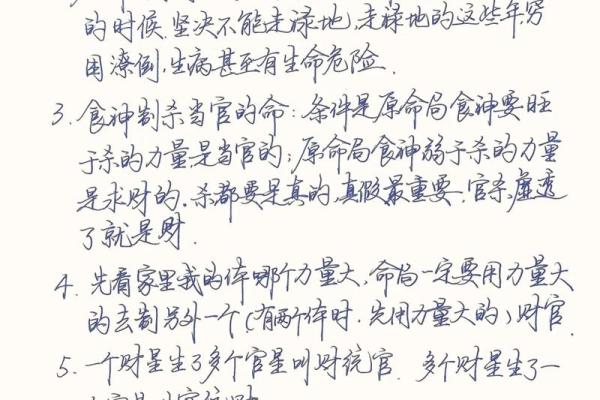 的时候.坚决不能走禄地,走禄地的这些年,穷
困潦倒,生病甚至有生命危险.
3. 食神制杀当官的命:条件是原命局食神要旺
于杀的力量是当官的;原命局食神弱于杀的力量
是求财的.杀都要是真的,真假最重要.官杀虚透
了就是财.
4. 先看家里我的体哪个力量大,命局一定要用力量大
的去制另外一个(有两个体时.先用力量大的)财官.
5. 一个财星生了多个官星叫财统官. 多个财星生了一